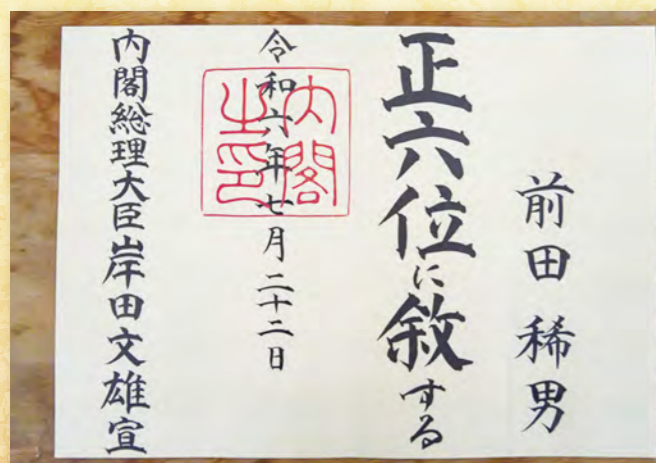 前田稀男
正六位に敘する
令和六年七月二十二日
内閣之印
内閣総理大臣岸田文雄宣